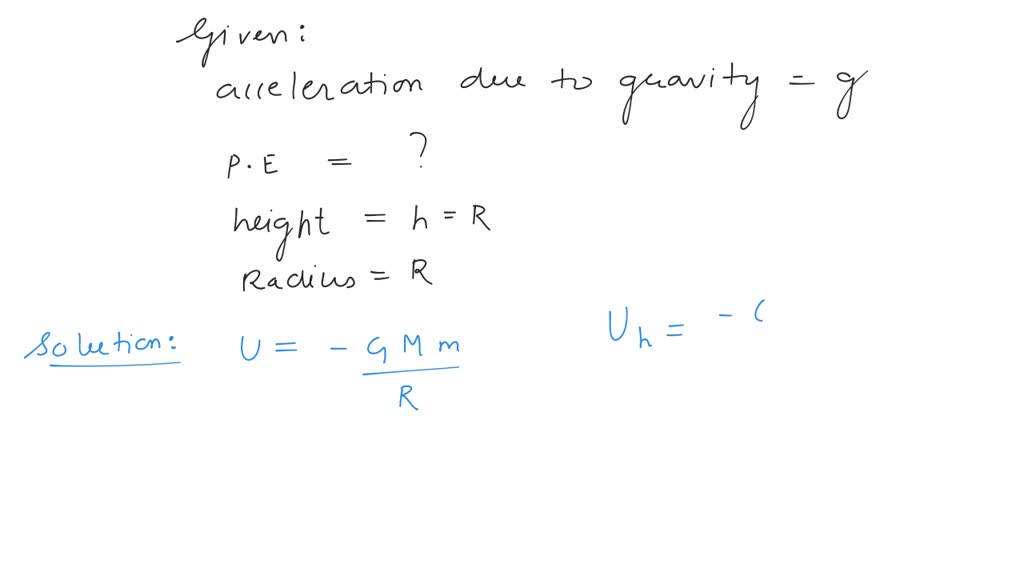 Given:
acceleration due to gravity = g
P.E = ?
height = h = R
Radius = R
Solution: U = - GMm / R
U_h = - (